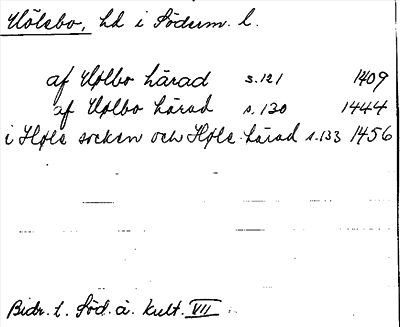 Hölebo, hd i Söderm. l.
af Hølbo härad s.121 1409
af Hølbo härad s.130 1444
i Høle socken och Høle härad s.133 1456
Bidr. t. Söd. ä. kult. VII